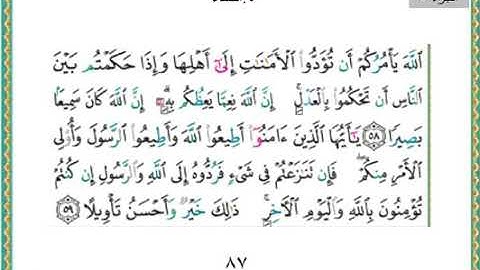 اللَّهَ يَأْمُرُكُمْ أَن تُؤَدُّوا۟ ٱلْأَمَـٰنَـٰتِ إِلَىٰٓ أَهْلِهَا وَإِذَا حَكَمْتُم بَيْنَ
ٱلنَّاسِ أَن تَحْكُمُوا۟ بِٱلْعَدْلِ ۚ إِنَّ ٱللَّهَ نِعِمَّا يَعِظُكُم بِهِۦٓ ۗ إِنَّ ٱللَّهَ كَانَ سَمِيعًۢا
بَصِيرًا ٥٨ يَـٰٓأَيُّهَا ٱلَّذِينَ ءَامَنُوٓا۟ أَطِيعُوا۟ ٱللَّهَ وَأَطِيعُوا۟ ٱلرَّسُولَ وَأُو۟لِى
ٱلْأَمْرِ مِنكُمْ ۖ فَإِن تَنَـٰزَعْتُمْ فِى شَىْءٍ فَرُدُّوهُ إِلَى ٱللَّهِ وَٱلرَّسُولِ إِن كُنتُمْ
تُؤْمِنُونَ بِٱللَّهِ وَٱلْيَوْمِ ٱلْـَٔاخِرِ ۚ ذَٰلِكَ خَيْرٌ وَأَحْسَنُ تَأْوِيلًا ٥٩
٨٧